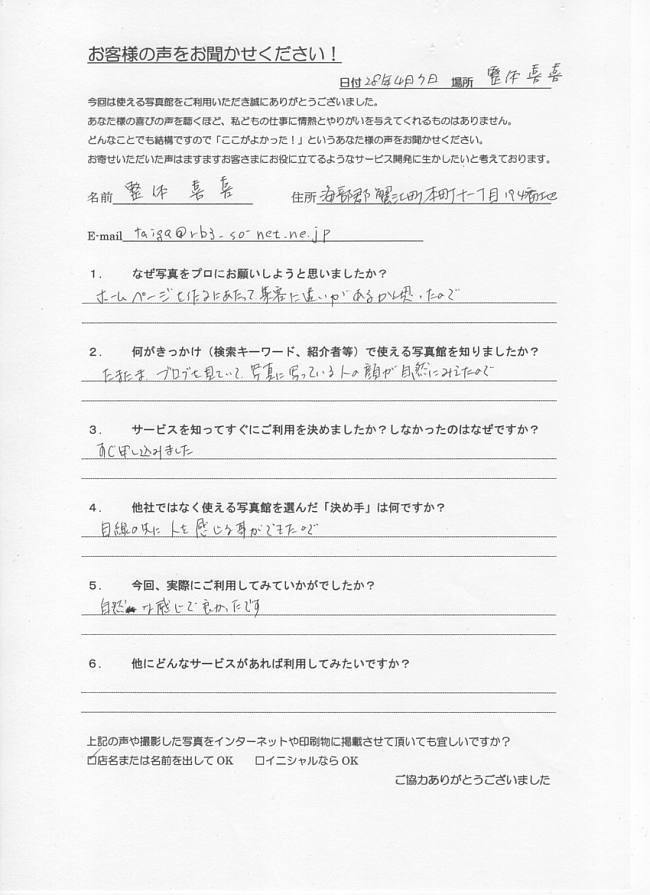 お客様の声をお聞かせください！
日付 28年4月7日 場所 整体 喜喜
今回は使える写真館をご利用いただき誠にありがとうございました。
あなた様の喜びの声を聴くほど、私どもの仕事に情熱とやりがいを与えてくれるものはありません。
どんなことでも結構ですので「ここがよかった！」というあなた様の声をお聞かせください。
お寄せいただいた声はますますお客さまにお役に立てるようなサービス開発に生かしたいと考えております。
名前 整体 喜喜 住所 海部郡蟹江町本町十一丁目194番地
E-mail taiga@rb3.so-net.ne.jp
1． なぜ写真をプロにお願いしようと思いましたか？
ホームページを作るにあたって集客に違いがあるかと思ったので
2． 何がきっかけ（検索キーワード、紹介者等）で使える写真館を知りましたか？
たまたま、ブログを見ていて、写真に写っている人の顔が自然にみえたので
3． サービスを知ってすぐにご利用を決めましたか？しなかったのはなぜですか？
すぐ申し込みました
4． 他社ではなく使える写真館を選んだ「決め手」は何ですか？
目線の中に人を感じる事ができたので
5． 今回、実際にご利用してみていかがでしたか？
自然な感じで良かったです
6． 他にどんなサービスがあれば利用してみたいですか？
上記の声や撮影した写真をインターネットや印刷物に掲載させて頂いても宜しいですか？
☑店名または名前を出して OK □イニシャルなら OK
ご協力ありがとうございました